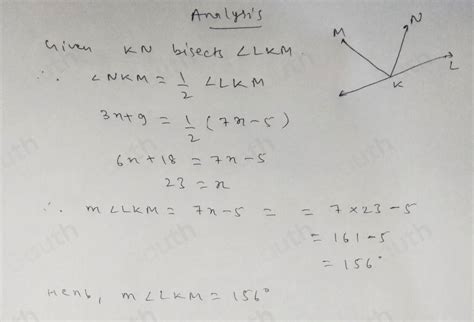 Analysis
Given KN bisects ∠LKM.
∴ ∠NKM = 1/2 ∠LKM
3x+9 = 1/2 (7x-5)
6x+18 = 7x-5
23 = x
∴ m∠LKM = 7x-5 = = 7×23-5
= 161-5
= 156°
Henc, m∠LKM = 156°
M
N
L
K